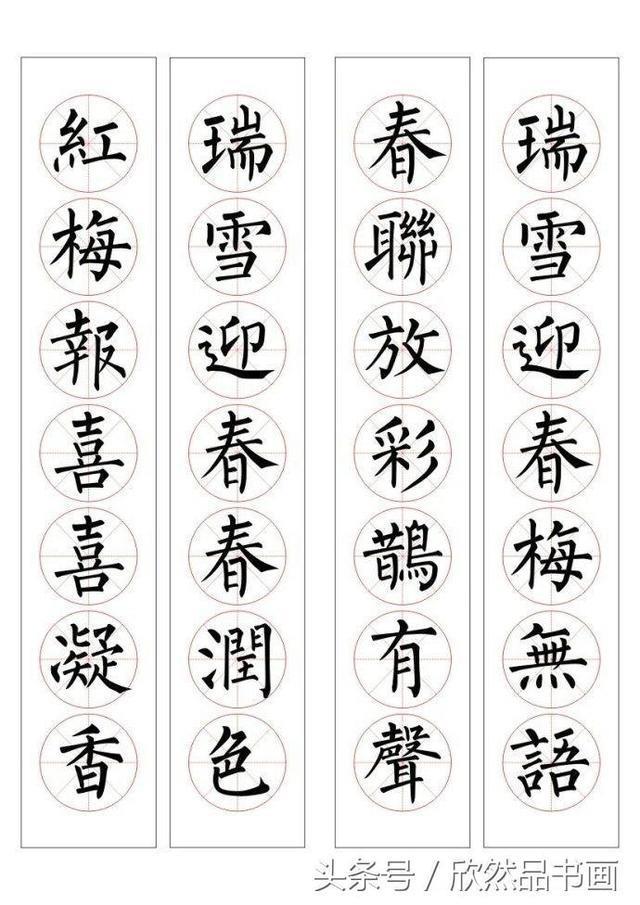 瑞雪迎春梅無語
春聯放彩鵲有聲
瑞雪迎春春潤色
紅梅報喜喜凝香
头条号 / 欣然品书画